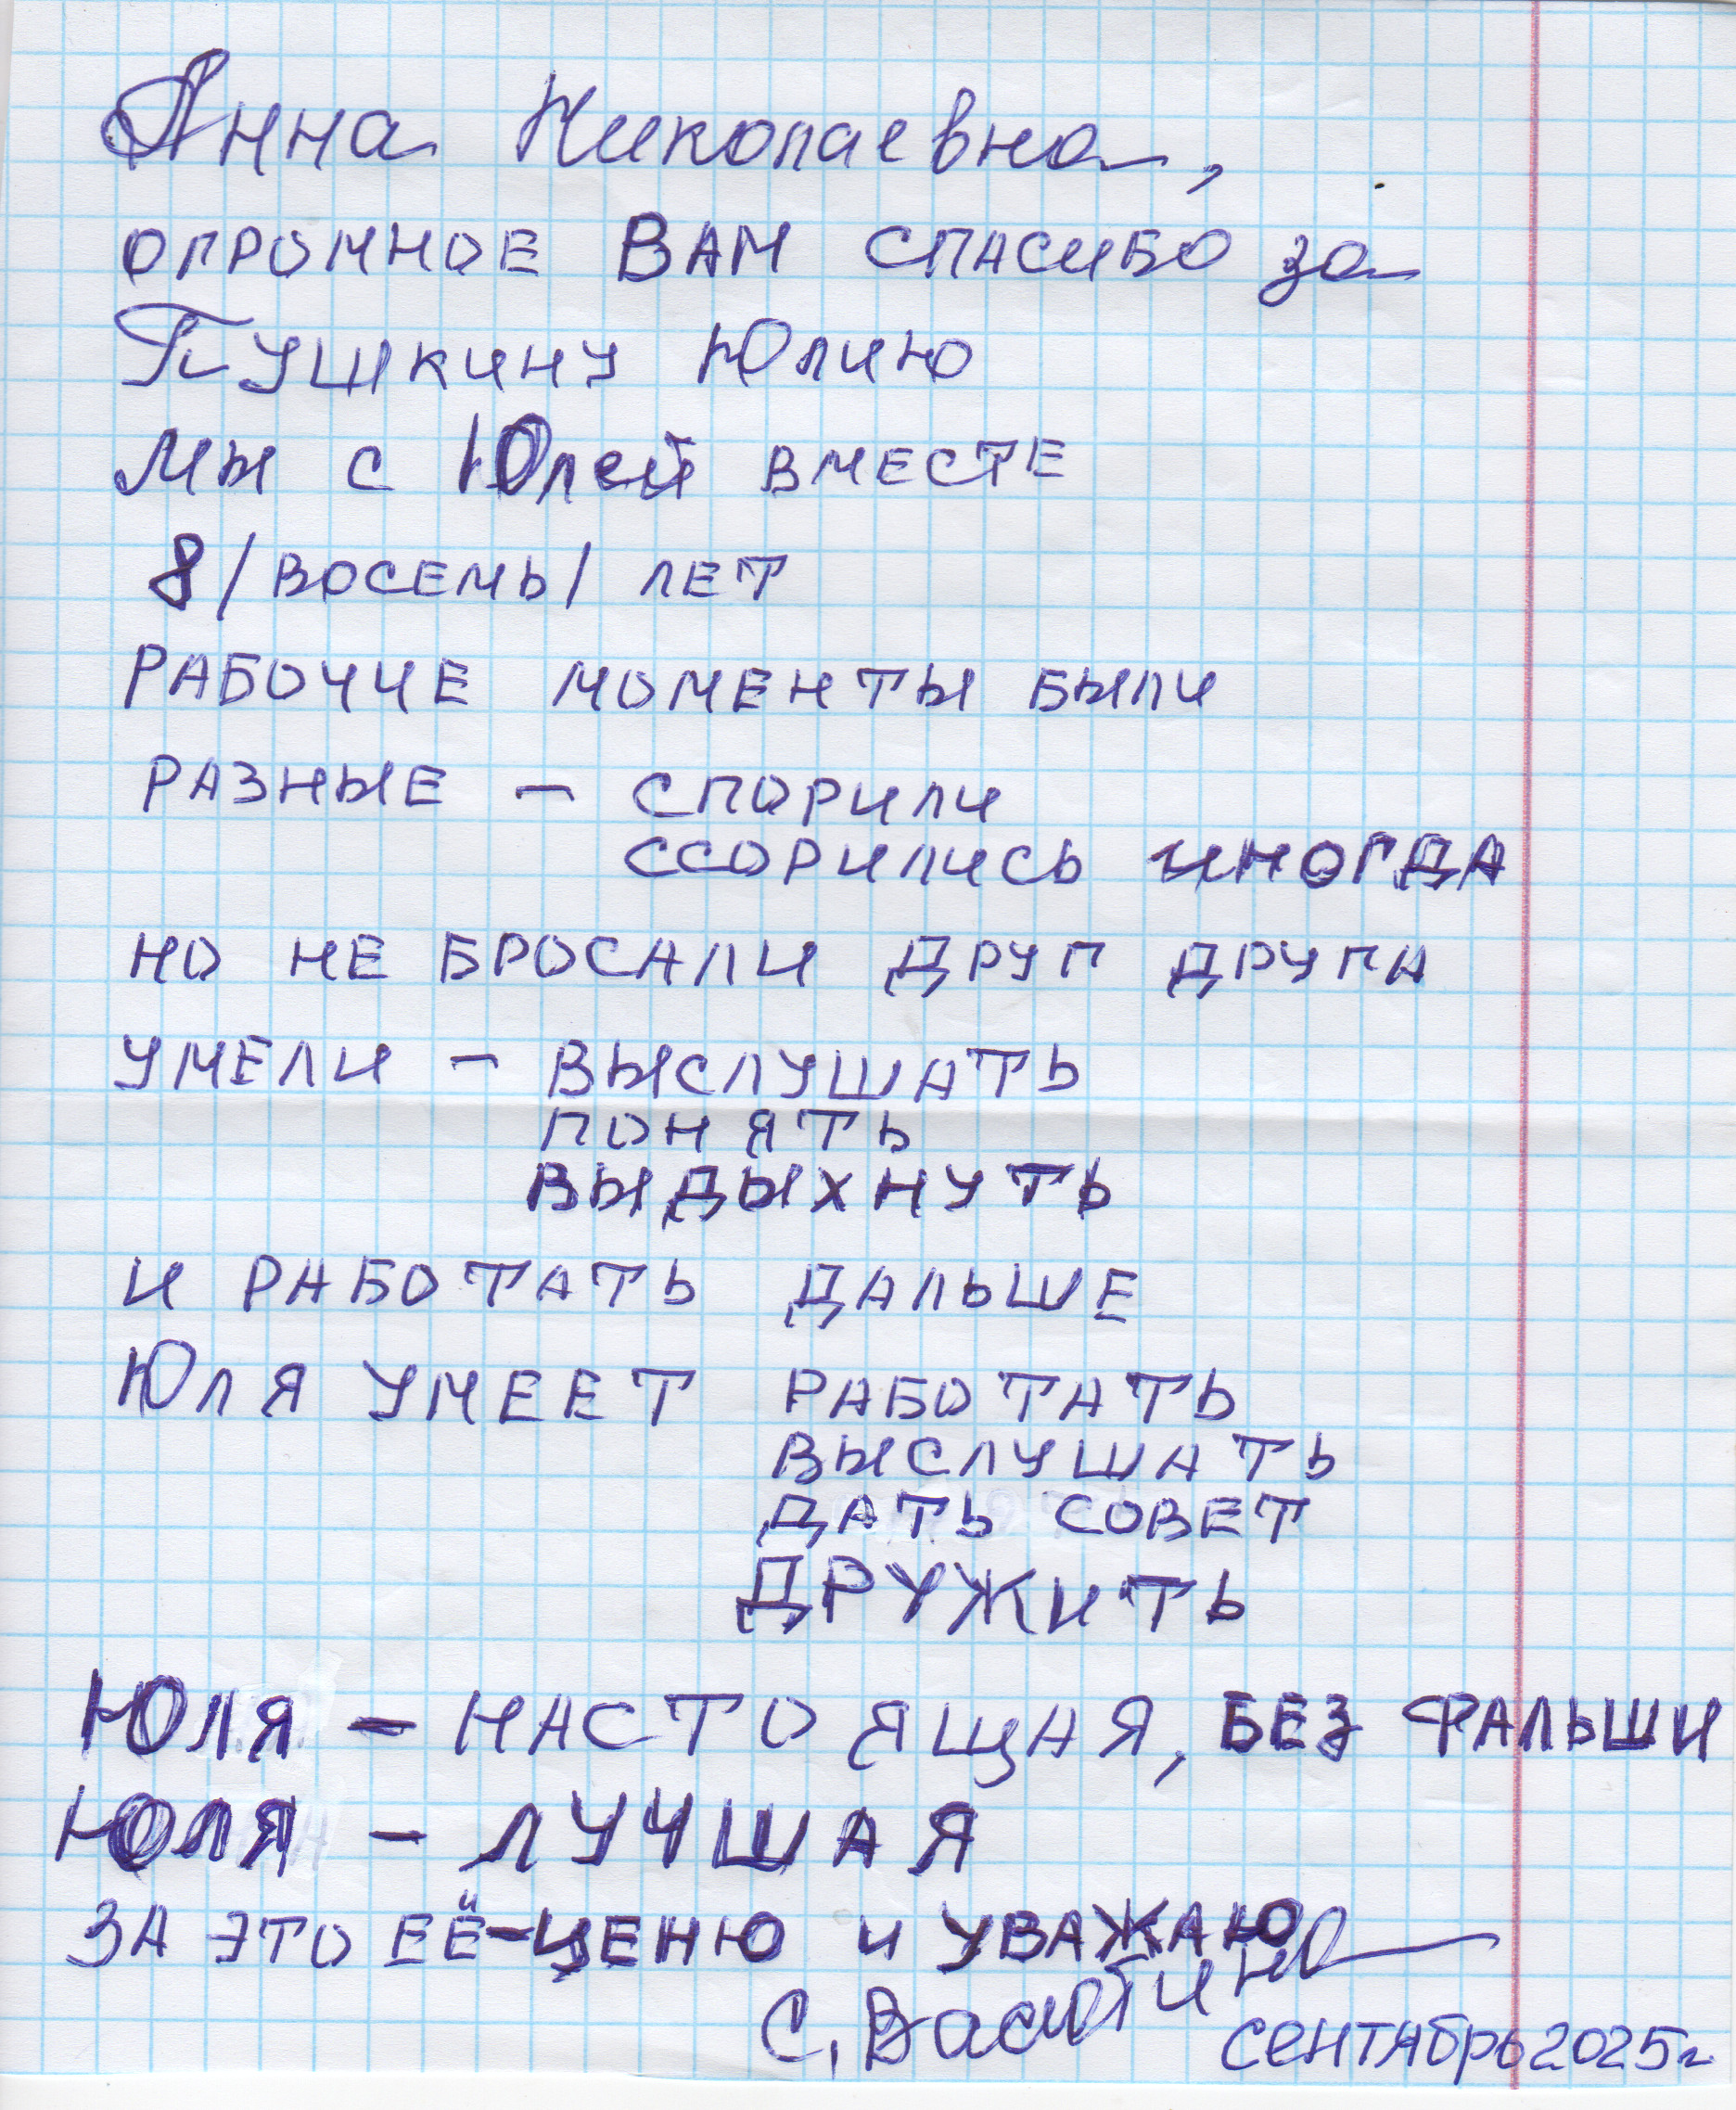 Анна Николаевна,
ОГРОМНОЕ ВАМ СПАСИБО за
ПУШКИНУ Юлию
МЫ С Юлей ВМЕСТЕ
8 /ВОСЕМЬ/ ЛЕТ
РАБОЧИЕ МОМЕНТЫ БЫЛИ
РАЗНЫЕ – СПОРИЛИ
ССОРИЛИСЬ ИНОГДА
НО НЕ БРОСАЛИ ДРУГ ДРУГА
УМЕЛИ – ВЫСЛУШАТЬ
ПОНЯТЬ
ВЫДЫХНУТЬ
И РАБОТАТЬ ДАЛЬШЕ
ЮЛЯ УМЕЕТ РАБОТАТЬ
ВЫСЛУШАТЬ
ДАТЬ СОВЕТ
ДРУЖИТЬ
ЮЛЯ – НАСТОЯЩАЯ, БЕЗ ФАЛЬШИ
ЮЛЯ – ЛУЧШАЯ
ЗА ЭТО ЕЁ – ЦЕНЮ И УВАЖАЮ
С.
СЕНТЯБРЬ 2025г